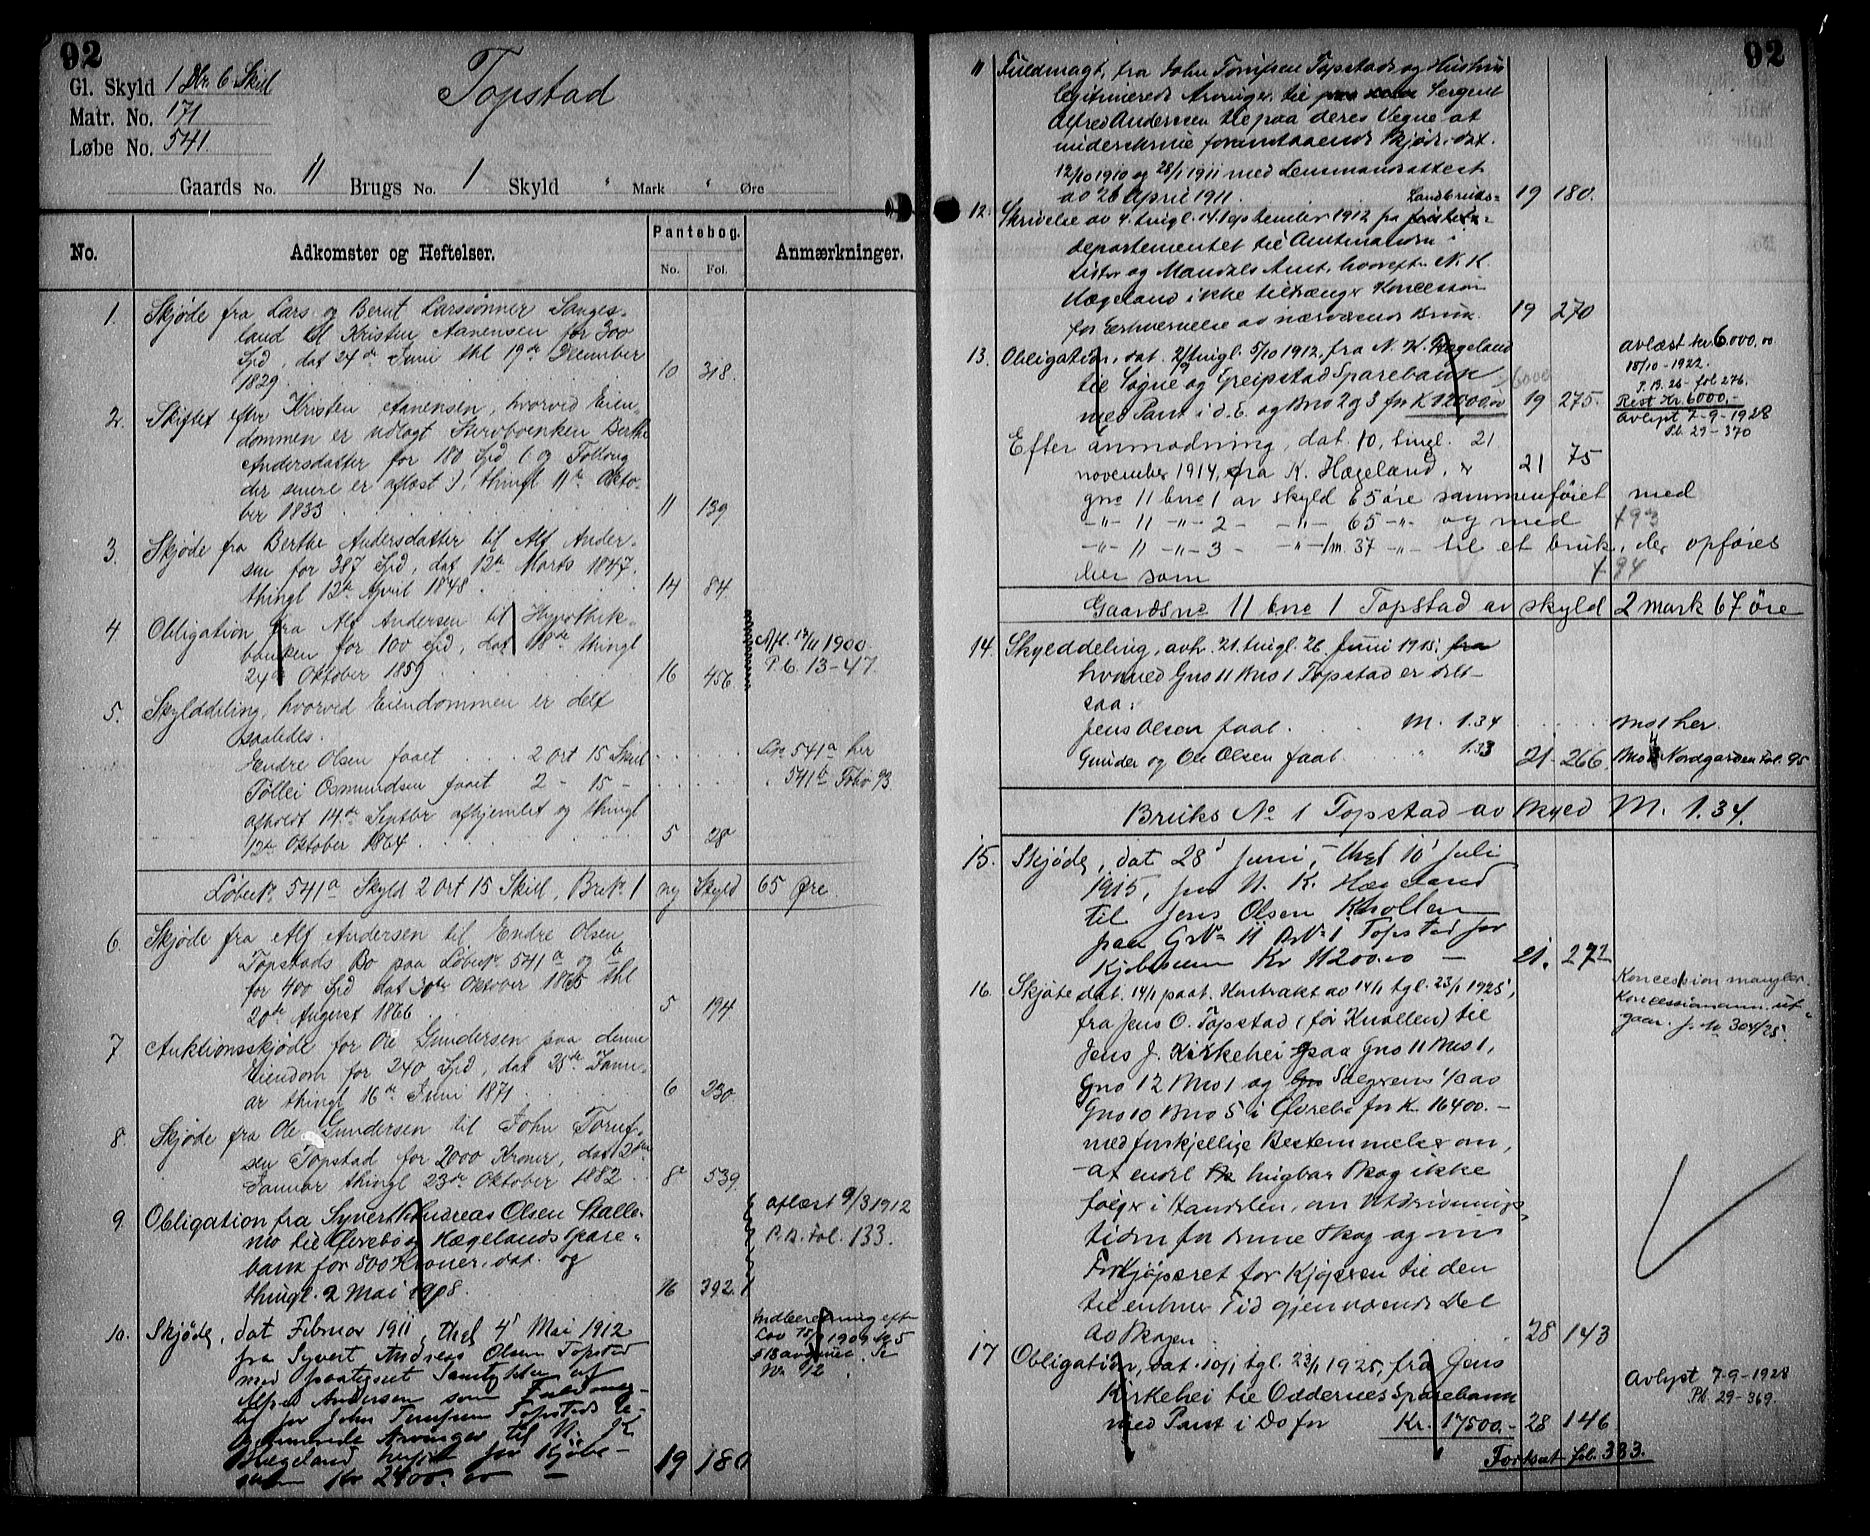 92
Gl. Skyld 1 Dlr. 6 Skill
Matr. No. 171
Løbe No. 541.
Topstad
Gaards No. 11 Brugs No. 1 Skyld " Mark " Øre
No. Adkomster og Heftelser. Pantebog. No. Fol. Anmærkninger.
1. Skjøde fra Lars og Berut Larssønner Sanges-
land til Kristen Aanensen for 300
Spd, dat 24de Juni thl 19de December
1829 10 318.
2. Skiftet efter Kristen Aanensen, hvorved Eien-
dommen er udlagt Stervboenken Berthe
Andersdatter for 180 Spd ( og Føllong
der senere er afløst ), thingl 11te Okto-
ber 1833 11 139
3. Skjøde fra Berthe Andersdatter til Alf Ander-
sen for 387 Spd, dat 12te Marts 1847.
thingl 12te April 1848 14 84.
4 Obligation fra Alf Andersen til Hypothek-
banken for 100 Spd, dat 18de thingl
24de Oktober 1859 16 456.
Afl. 17/11 1900.
P.b. 13-47.
5. Skylddeling, hvorved Eiendommen er delt
saaledes.
Endre Olsen faaet 2 ort 15 Skill Lr. 541a her
Tøllei Osmundsen faaet 2 - 15 - 541b Folio 93
afholdt 14de Septbr afhjemlet og thingl
12te Oktober 1864 5 28
Løbeno. 541a Skyld 2 Ort 15 Skill, Brno. 1 ny Skyld 65 Øre
6. Skjøde fra Alf Andersen til Endre Olsen
Topstads Bo paa Løbeno. 541a og b
for 400 Spd dat 30te Oktober 1865 thl
20de August 1866 5 194
7 Auktionsskjøde for Ole Gundersen paa denne
Eiendom for 240 Spd, dat 25de Janu-
ar thingl 16de Juni 1871 6 230
8. Skjøde fra Ole Gundersen til John Toruf-
sen Topstad for 2000 Kroner, dat 20de
Januar thingl 23de Oktober 1882 8 539.
9. Obligation fra Syvert Andreas Olsen Stalle-
mo til Øvrebø og Hægelands Spare-
bank for 800 Kroner, dat. og
thingl. 2 Mai 1908. 16 392.
aflæst 9/3 1912
P.B. Fol. 133.
10. Skjøde, dat Februar 1911, thgl 4de Mai 1912
fra Syvert Andreas Olsen Topstad
med paategnet Samtykke af
Alfred Andersen som Fuldmæg-
tig for John Torufsen Topstads le-
gitimerede Arvinger til N. K.
Hægeland herpaa for Kjøbe-
sum Kr 2400.00 19 180
Indberetning efter
Lov 18/9 1909 No 5
§ 18 avgivet. Se
No. 12
92
11 Fuldmagt, fra John Torufsen Topstads og Hustrus
legitimerede Arvinger til Sergent
Alfred Andersen til paa deres Vegne at
underskrive foranstaaende Skjøde, dat.
12/10 1910 og 28/1 1911 med Lensmandsattest
av 26 April 1911. 19 180.
12. Skrivelse av 4. tingl. 14. September 1912 fra Landbruds-
departementet til Amtmanden i
Lister og Mandals Amt, hvorefter N. K.
Hægeland ikke tiltrænger Koncession
for Erhvervelse av nærværende Bruk. 19 270
13. Obligation, dat. 2/9 tingl. 5/10 1912, fra N. K. Hægeland
til Søgne og Greipstad Sparebank 6000
med Pant i d. E. og Bno 2 og 3 for K 12000.00 19 275.
avlæst kr 6.000.00
18/10 - 1922.
P.B. 26 - fol 276.
Rest Kr. 6000,-
Avlyst 7-9-1928
Pb. 29-370
Efter anmodning, dat. 10, tingl. 21
november 1914, fra K. Hægeland, er 21 75
gno 11 bno 1 av skyld 65 øre sammenføiet med
-"- 11 -"- 2 - -"- 65 -"- og med 493
-"- 11 -"- 3 - -"- 1 m. 37 -"- til et bruk, der opføres
her som 494
Gaardsno 11 bno 1 Topstad av skyld 2 mark 67 øre
14. Skylddeling, avh. 21. tingl. 26. Juni 1915, fra
hvorved Gno 11 Bno 1 Topstad er delt
saa:
Jens Olsen faat M. 1.34 Bno 1 her.
Gunder og Ole Olsen faat " 1.33 21 266. Bno 4 Nordgarden Fol. 95
Bruks No 1 Topstad av Skyld M. 1.34.
15. Skjøde, dat 28' Juni, thgl 10' Juli
1915, fra N. K. Hægeland
til Jens Olsen Knollen
paa GNo 11 BrNo 1 Topstad for
Kjøbesum Kr 11200.00 21. 272
16. Skjøte dat. 14/1 paat. Kontrakt av 14/1 tgl. 23/1 1925,
fra Jens O. Topstad (før Knollen) til
Jens J. Kirkehei paa Gno 11 Bno 1,
Gno 12 Bno 1 og Sælgerens 1/3 av
Gno 10 Bno 5 i Øvrebø for K. 16400.-
med forskjellige Bestemmelser om,
at endel hugbar Skog ikke
følger i Handelen, om Utdrivnings-
tiden for denne Skog og om
Forkjøpsret for Kjøperen til den
til enhver Tid gjenværende Del
av Skogen 28 143
Koncession mangler.
Koncessionsann. ut-
gaar. J. No 304/25.
17 Obligation, dat. 10/1 tgl. 23/1 1925, fra Jens
Kirkehei til Oddernes Sparebank
med Pant i Do for Kr. 17500.- 28 146
Avlyst 7-9-1928
Pb. 29-369.
Fortsat fol. 333.